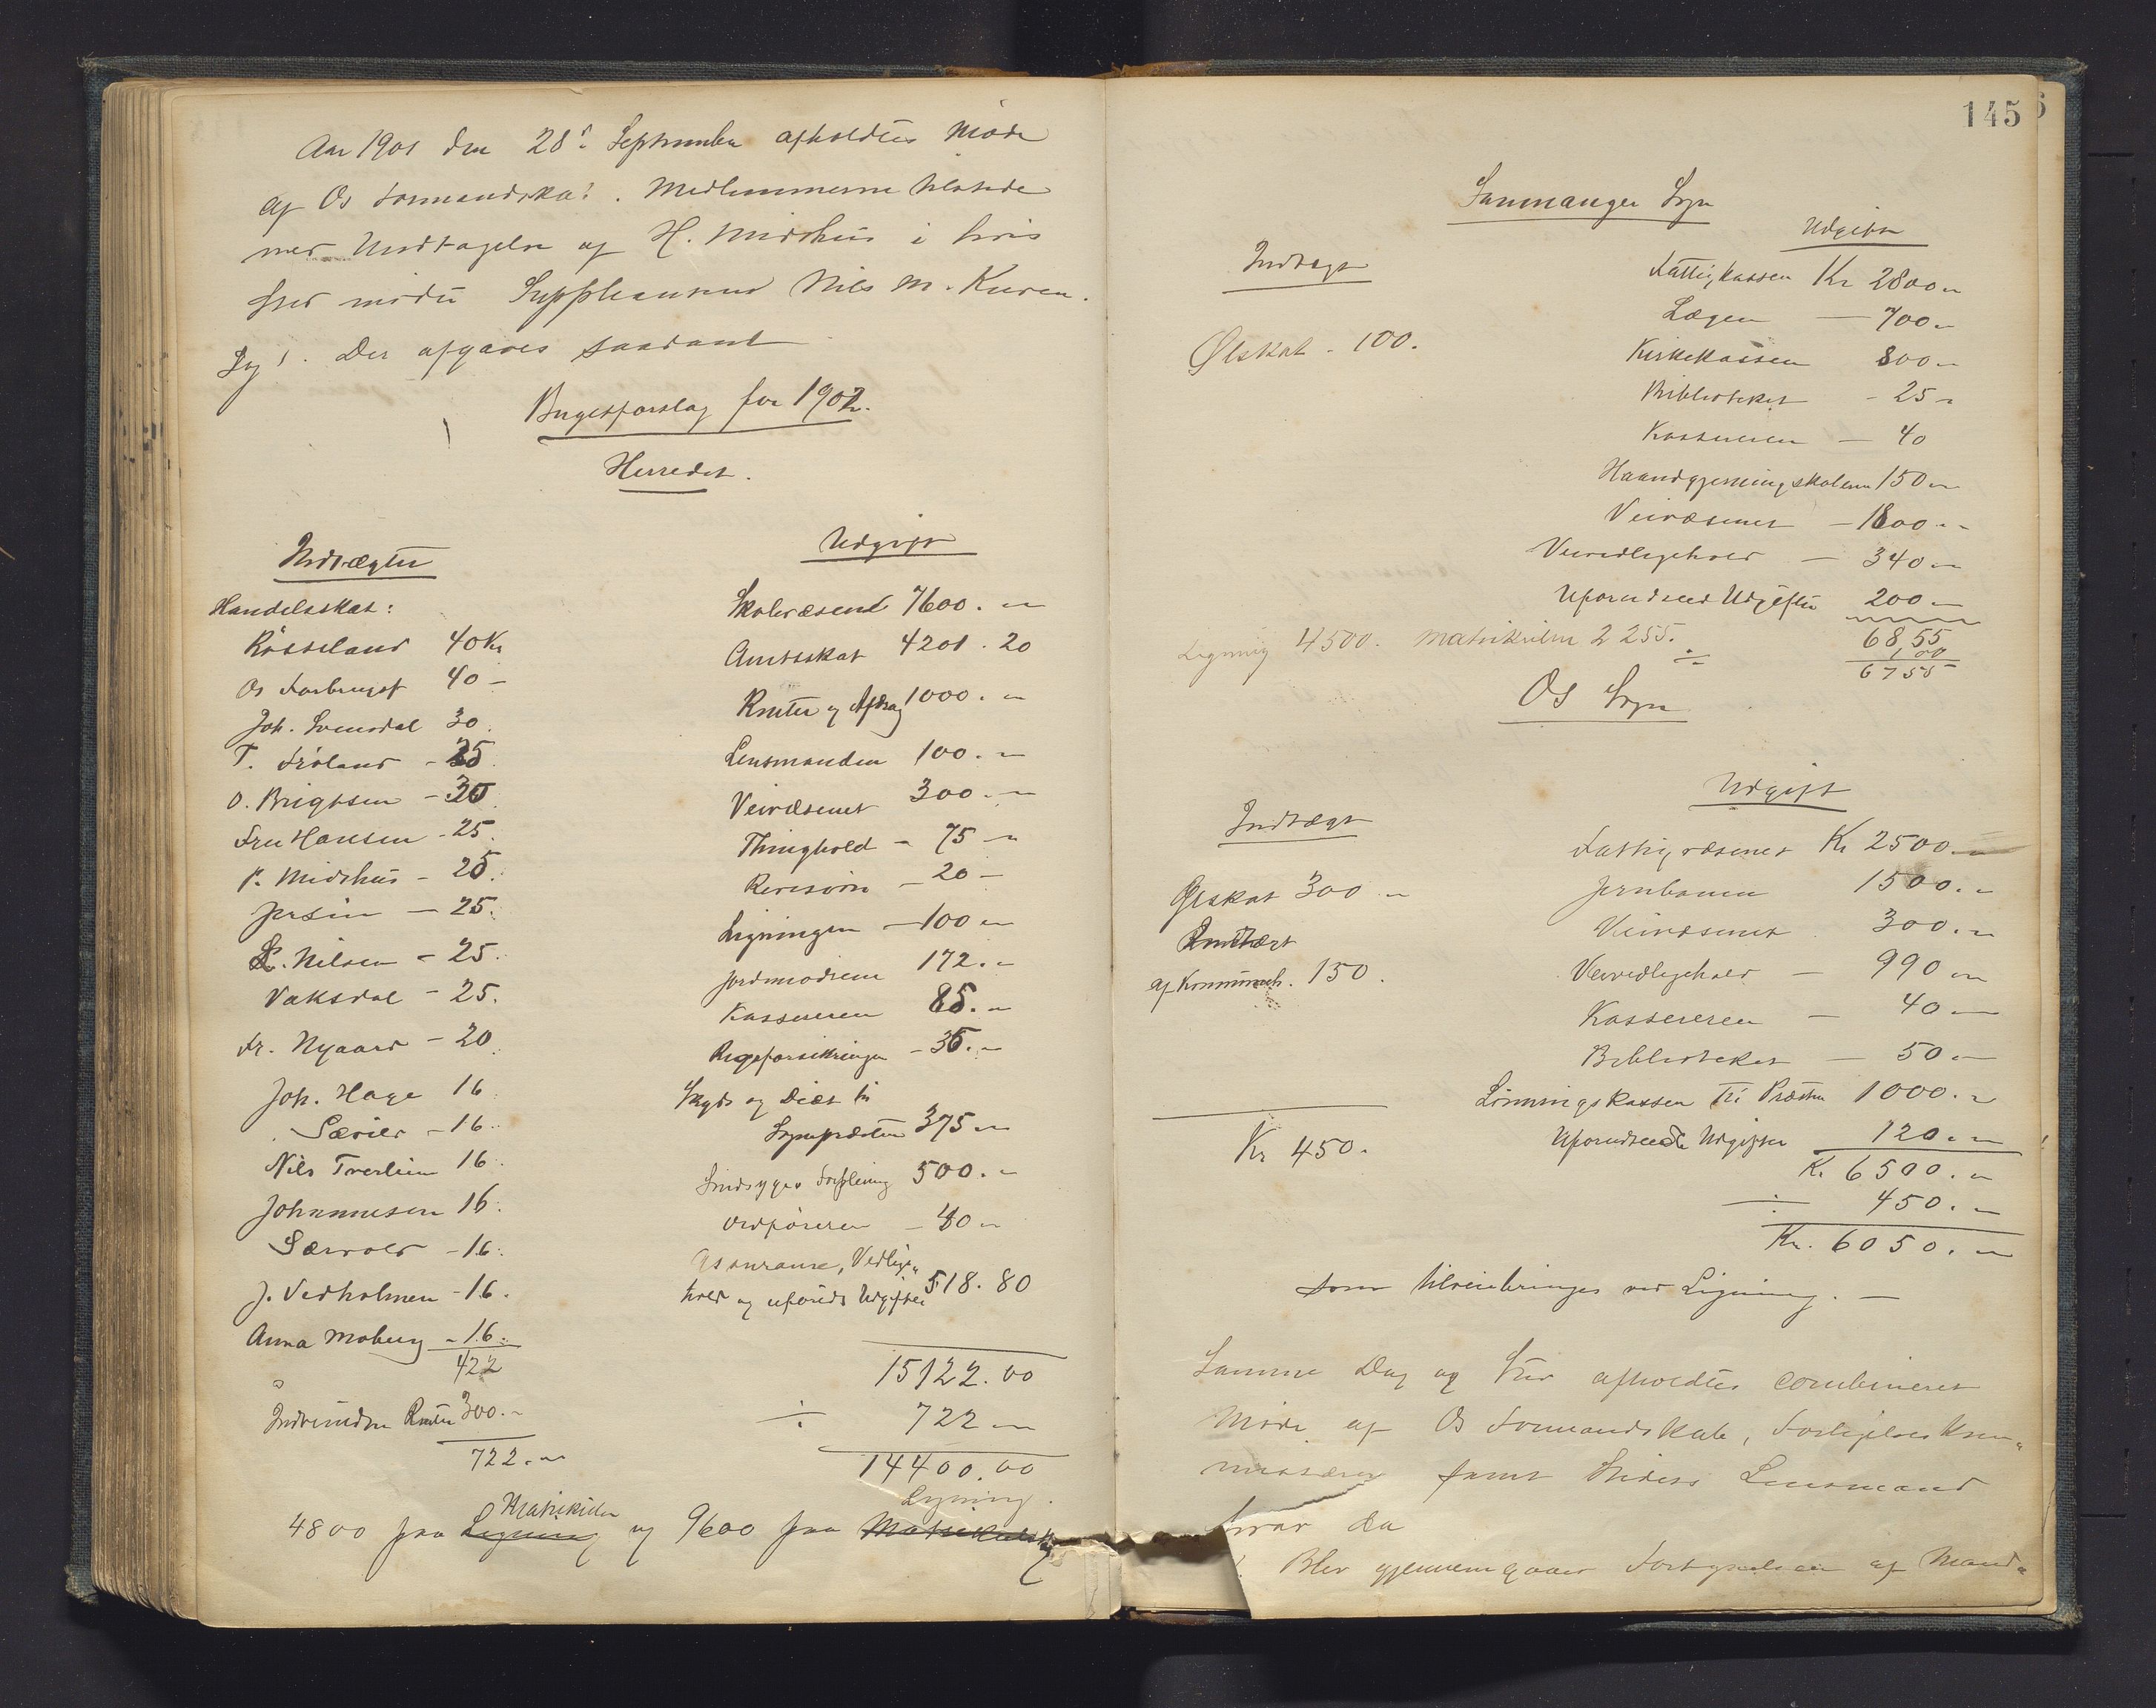 Aar 1901 den 28de September afholdtes Møde
af Os Formandskab. Medlemmerne tilstede
med Undtagelse af H. Midthus i hvis
Sted mødte Suppleanten Nils M. Kuven.
Sag 1. Der afgaves saadant
Bugetforslag for 1902.
Herredet.
Indtægter
Handelsskat:
Røsseland 40 Kr
Os Forbrugsf 40 –
Joh. Svendal 30
T. Frøland - 25
O. Brigtsen - 30
Fru Hansen - 25.
P. Midthus - 25.
Jersin - 25.
L. Nilsen - 25.
Vaksdal - 25.
Fr. Nygaard - 20
Joh. Hage 16
Særvold - 16.
Nils Tverlien 16
Johannesen 16.
Særvold - 16.
J. Vedholmen - 16.
Anna Moberg - 16.
422
Indvundne Renter 300.-
722.-
Udgift
Skolevæsenet 7600. -
Amtsskat 4201. 20
Renter og Afdrag 1000. -
Lensmanden 100. -
Veivæsenet 300. -
Thinghold - 75 -
Revision - 20 -
Ligningen - 100 -
Jordmødrene 172. -
Kassereren 85. -
Rigsforsikringen - 35. -
Skyds og Diæt til
Sognepræsten 375 -
Sindssyges Forpleining 500. -
Ordføreren - 40 -
Assurance, Vedlige-
hold og uforuds Udgifter 518. 80
15122. 00
÷ 722 -
14400. 00
Ligning.
Matrikulen
4800 paa Ligning og 9600 paa Matrikulsk
145
Sammanger Sogn
Indtægt
Ølskat - 100.
Udgifter
Fattigkassen Kr 2800 -
Lægen - 700 -
Kirkekassen 800 -
Bibliotekat - 25 -
Kassereren - 40
Haandgjerningskolerne 150 -
Veivæsenet - 1800 -
Veivedligehold - 340 -
Uforudseede Udgifter 200 -
6855
Ligning 4500. Matrikulen 2255. ÷ 100
6755
Os Sogn
Indtægt
Ølskat 300 -
Indtægt
af Kommuneh. 150.
Kr 450.
Udgift
Fattigvæsenet Kr 2500 -
Jernbanen 1500. -
Veivæsenet 300. -
Veivedligehold - 990 -
Kassereren - 40 -
Bibliotekat - 50 -
Lønningskassen til Præsten 1000. -
Uforudseede Udgifter 120. -
Kr 6500. -
÷ 450. -
Kr. 6050. -
som tilveiebringes ved Ligning. -
Samme Dag og Sted afholdtes combineret
Møde af Os Formandskab, Forligelseskom-
missærer samt Stedets Lensmand
hvor da
Blev gjennemgaaet Fortegnelsen af Mand-